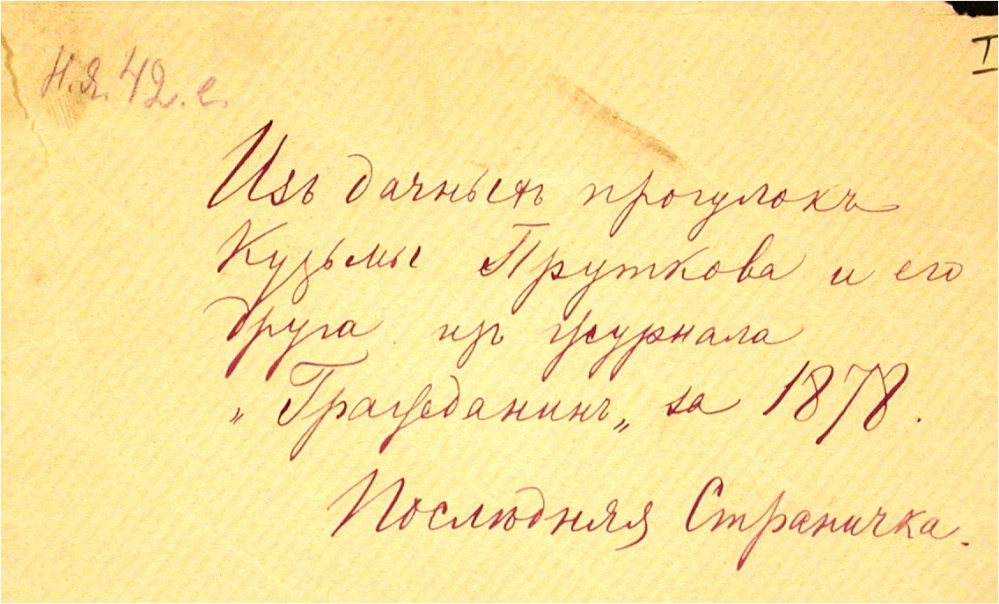 I
Н.Я. 42. с.
Изъ дачныхъ прогулокъ
Кузьмы Пруткова и его
друга изъ журнала
„Гражданинъ„ за 1878.
Послѣдняя Страничка.